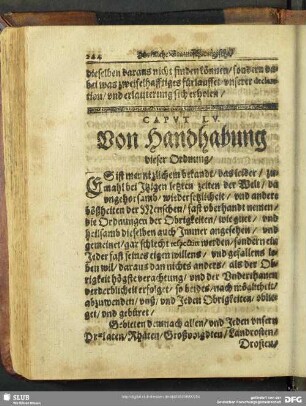 dieselben daraus nicht finden können / sondern da
bei was zweiffelhafftiges fürlauffet unserer declara-
tion / und erläuterung sich erholen /
CAPVT LV.
Von Handhabung
dieser Ordnung /
ES ist mer nützlichem bekandt, das leider / zu-
mahl bei Itzigen letzten zeiten der Welt / da
ungehorsamb / widersetzlicheit / und andere
bößheiten der Menschen / fast überhand nemen /
die Ordnungen der Obrigkeiten / und
heilsamb dieselben auch Immer angesehen / und
gemeinet / gar schlecht respectirt werden / sondern ein
Jeder fast seines eigen willens / und gefallens le-
ben wil / daraus dan nichts anders / als der Ob-
rigkeit högste verachtung / und der Underthanen
verderblicheit erfolget / so beides / nach mögligheit /
abzuwenden / uns / und Jeden Obrigkeiten / oblie-
get / und gebüret /
Gebieten demnach allen / und Jeden unsern
Prælaten / Rhäten / Großvoigdten / Landrosten /
Drosten /
SLUB
DFG